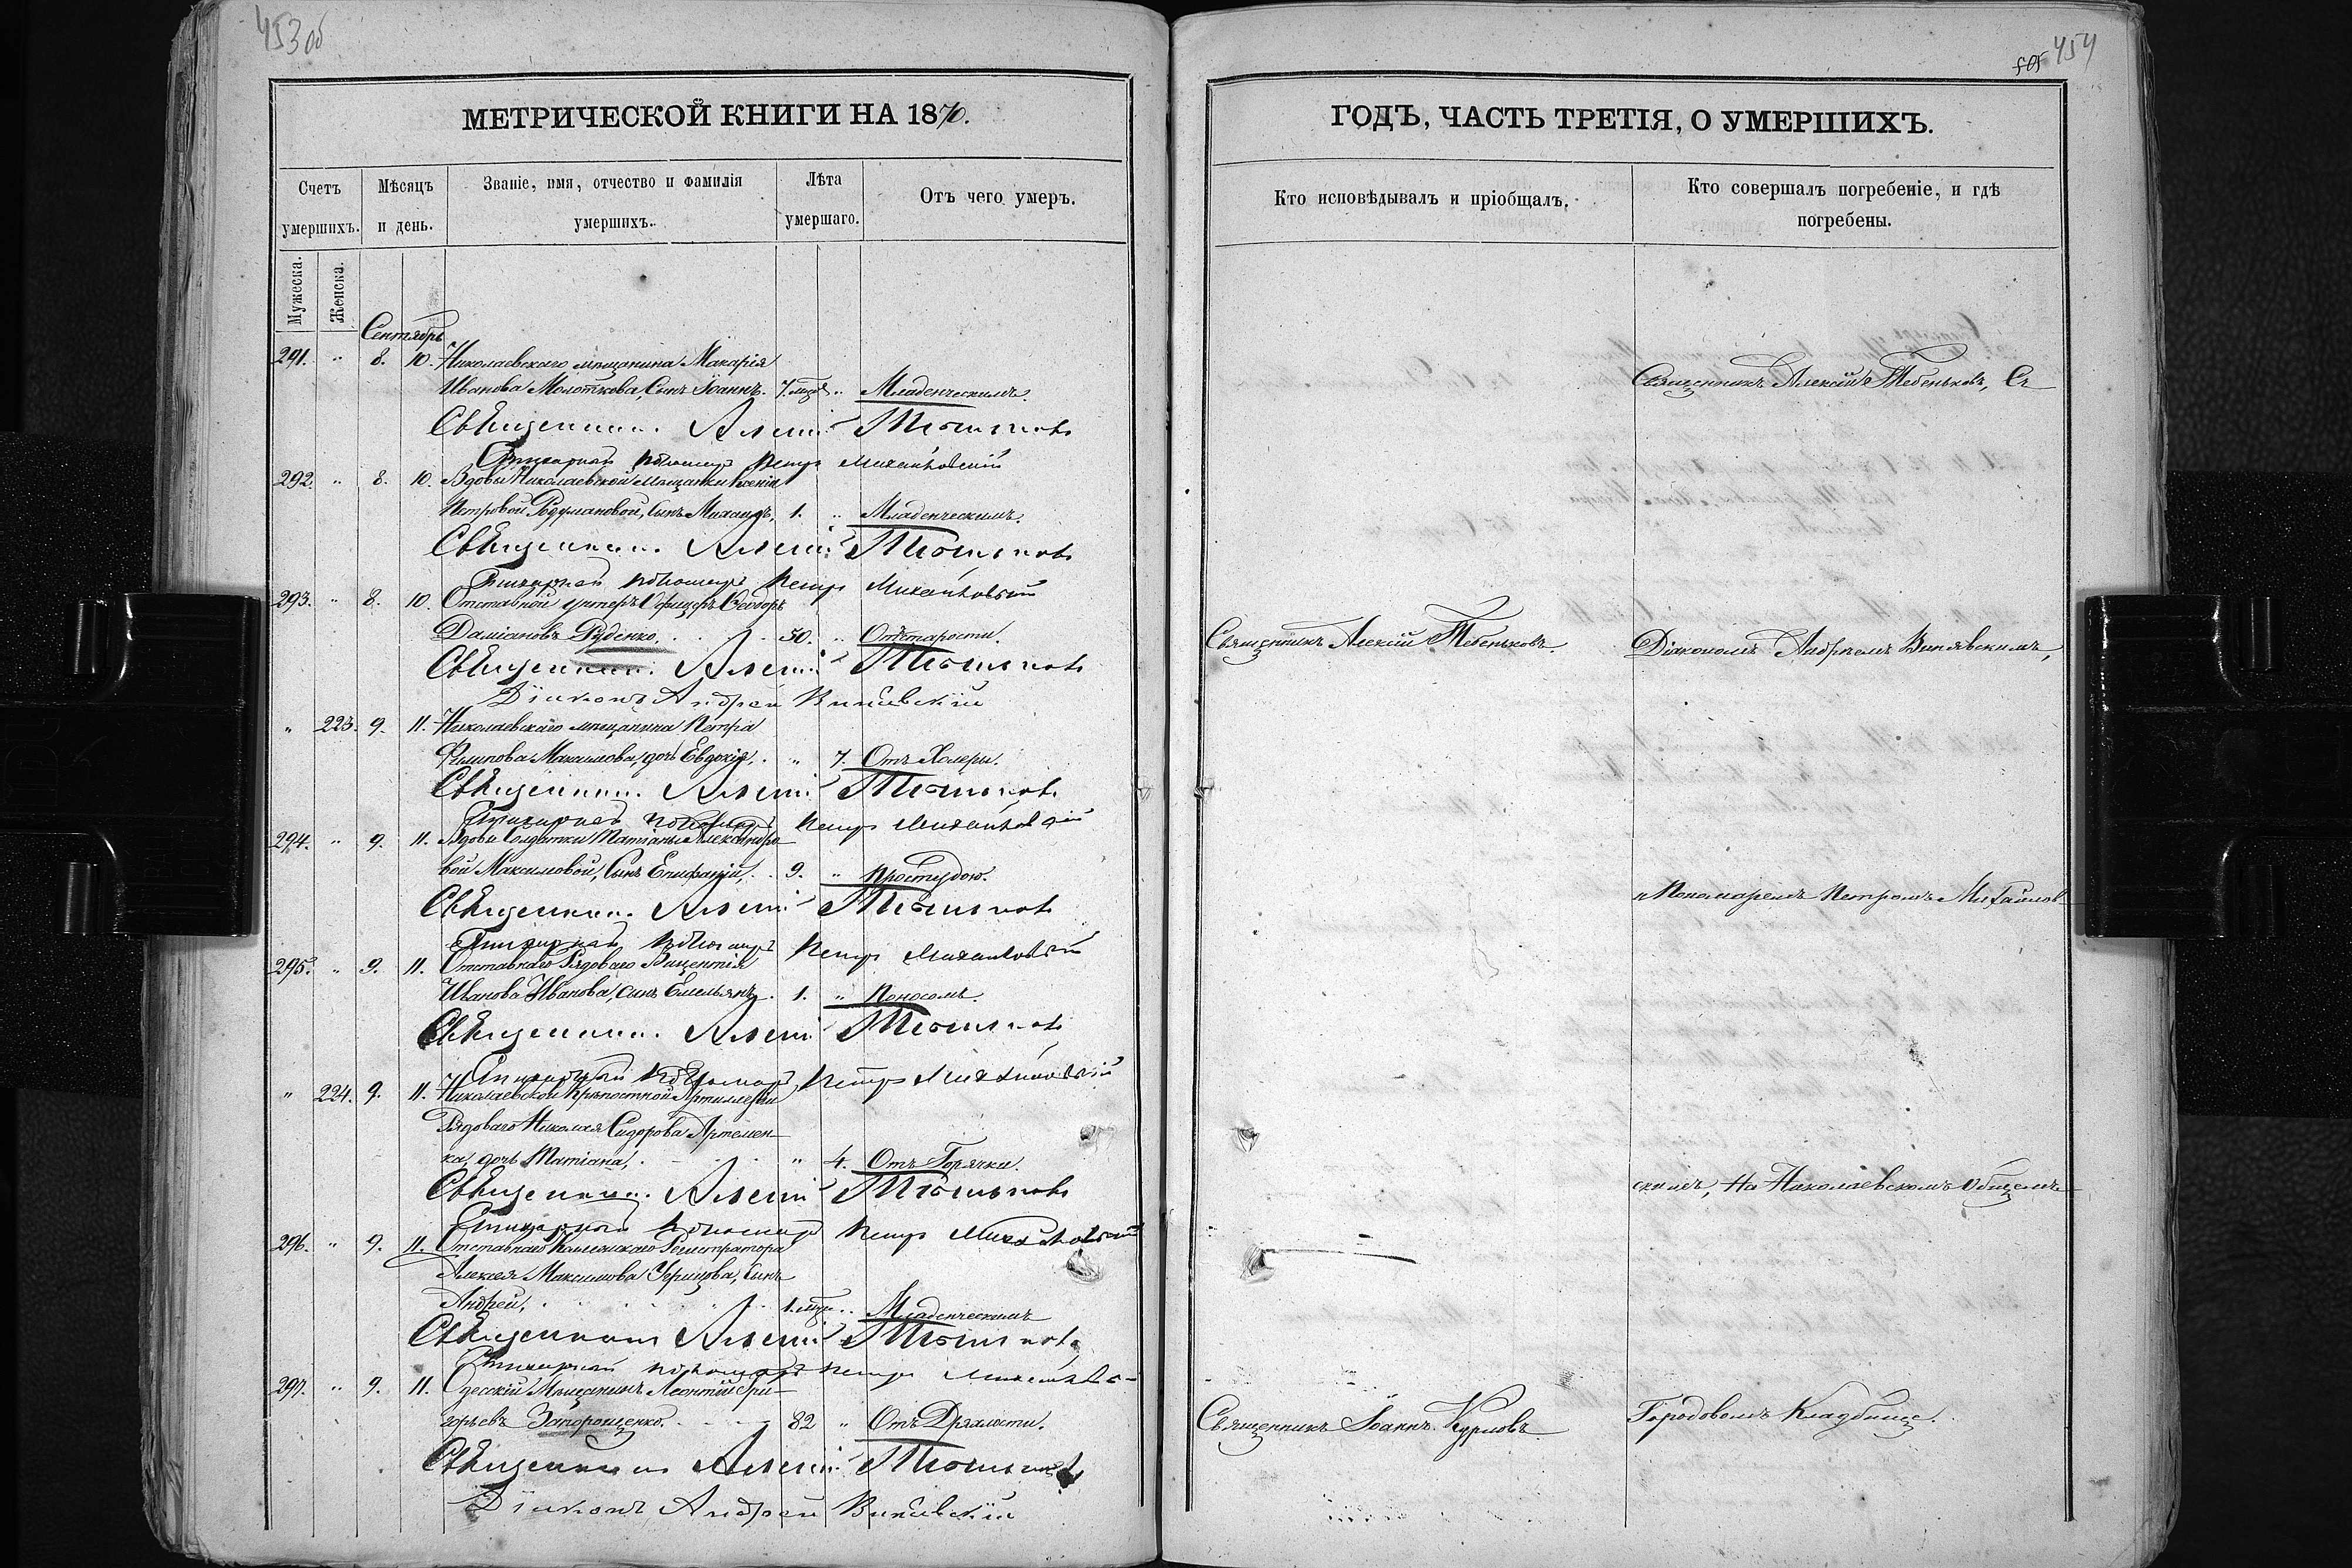 453 об
МЕТРИЧЕСКОЙ КНИГИ НА 1870.
Счетъ умершихъ.
Мѣсяцъ и день.
Званіе, имя, отчество и фамилія умершихъ.
Лѣта умершаго.
Отъ чего умеръ.
Мужеска.
Женска.
Сентябрь
291. " 8. 10. Николаевскаго мѣщанина Макарія
Иванова Молоткова, Сынъ Іоаннъ. 7. мѣс. " Младенческимъ.
Священникъ Алексій Тебеньковъ
Пономарь Петръ Михайловскій
292. " 8. 10. Вдовы Николаевской Мѣщанки Ксеніи
Петровой, Сынъ Михаилъ, 1. " Младенческимъ.
Священникъ Алексій Тебеньковъ
Пономарь Петръ Михайловскій
293. " 8. 10. Отставной унтеръ Офицеръ Ѳеодоръ
Даміановъ Руденко. 50. " Отъ старости.
Священникъ Алексій Тебеньковъ
Діаконъ Андрей Винявскій
" 223. 9. 11. Николаевскаго мѣщанина Петра
Филипова Максимова, дочь Евдокія. " 7. Отъ Холеры.
Священникъ Алексій Тебеньковъ
Пономарь Петръ Михайловскій
294. " 9. 11. Вдовы Солдатки Татіаны Александро
вой Максимовой, Сынъ Епифаній, 9. " Простудою.
Священникъ Алексій Тебеньковъ
Пономарь Петръ Михайловскій
295. " 9. 11. Отставнаго Рядоваго Викентія
Иванова Иванова, сынъ Емельянъ. 1. " Поносомъ.
Священникъ Алексій Тебеньковъ
Пономарь Петръ Михайловскій
" 224. 9. 11. Николаевской Крѣпостной Артиллеріи
Рядоваго Николая Сидорова Артемен-
ка, дочь Татіана, " 4. Отъ Горячки.
Священникъ Алексій Тебеньковъ
Пономарь Петръ Михайловскій
296. " 9. 11. Отставнаго Коллежскаго Регистратора
Алексея Максимова, Сынъ
Андрей, 1. мѣс. " Младенческимъ
Священникъ Алексій Тебеньковъ
Пономарь Петръ
297. " 9. 11. Одесскій Мѣщанинъ Леонтій Гри-
горьевъ Запорощенко. 82 " Отъ Дряхлости.
Священникъ Алексій Тебеньковъ
Діаконъ Андрей Винявскій
505 454
ГОДЪ, ЧАСТЬ ТРЕТІЯ, О УМЕРШИХЪ.
Кто исповѣдывалъ и пріобщалъ.
Кто совершалъ погребеніе, и гдѣ погребены.
Священникъ Алексій Тебеньковъ, Съ
Священникъ Алексій Тебеньковъ.
Діакономъ Андреемъ Винявскимъ,
и Пономаремъ Петромъ Михайлов-
скимъ, На Николаевскомъ Общемъ
Священникъ Іоаннъ Курловъ
Городовомъ Кладбище.